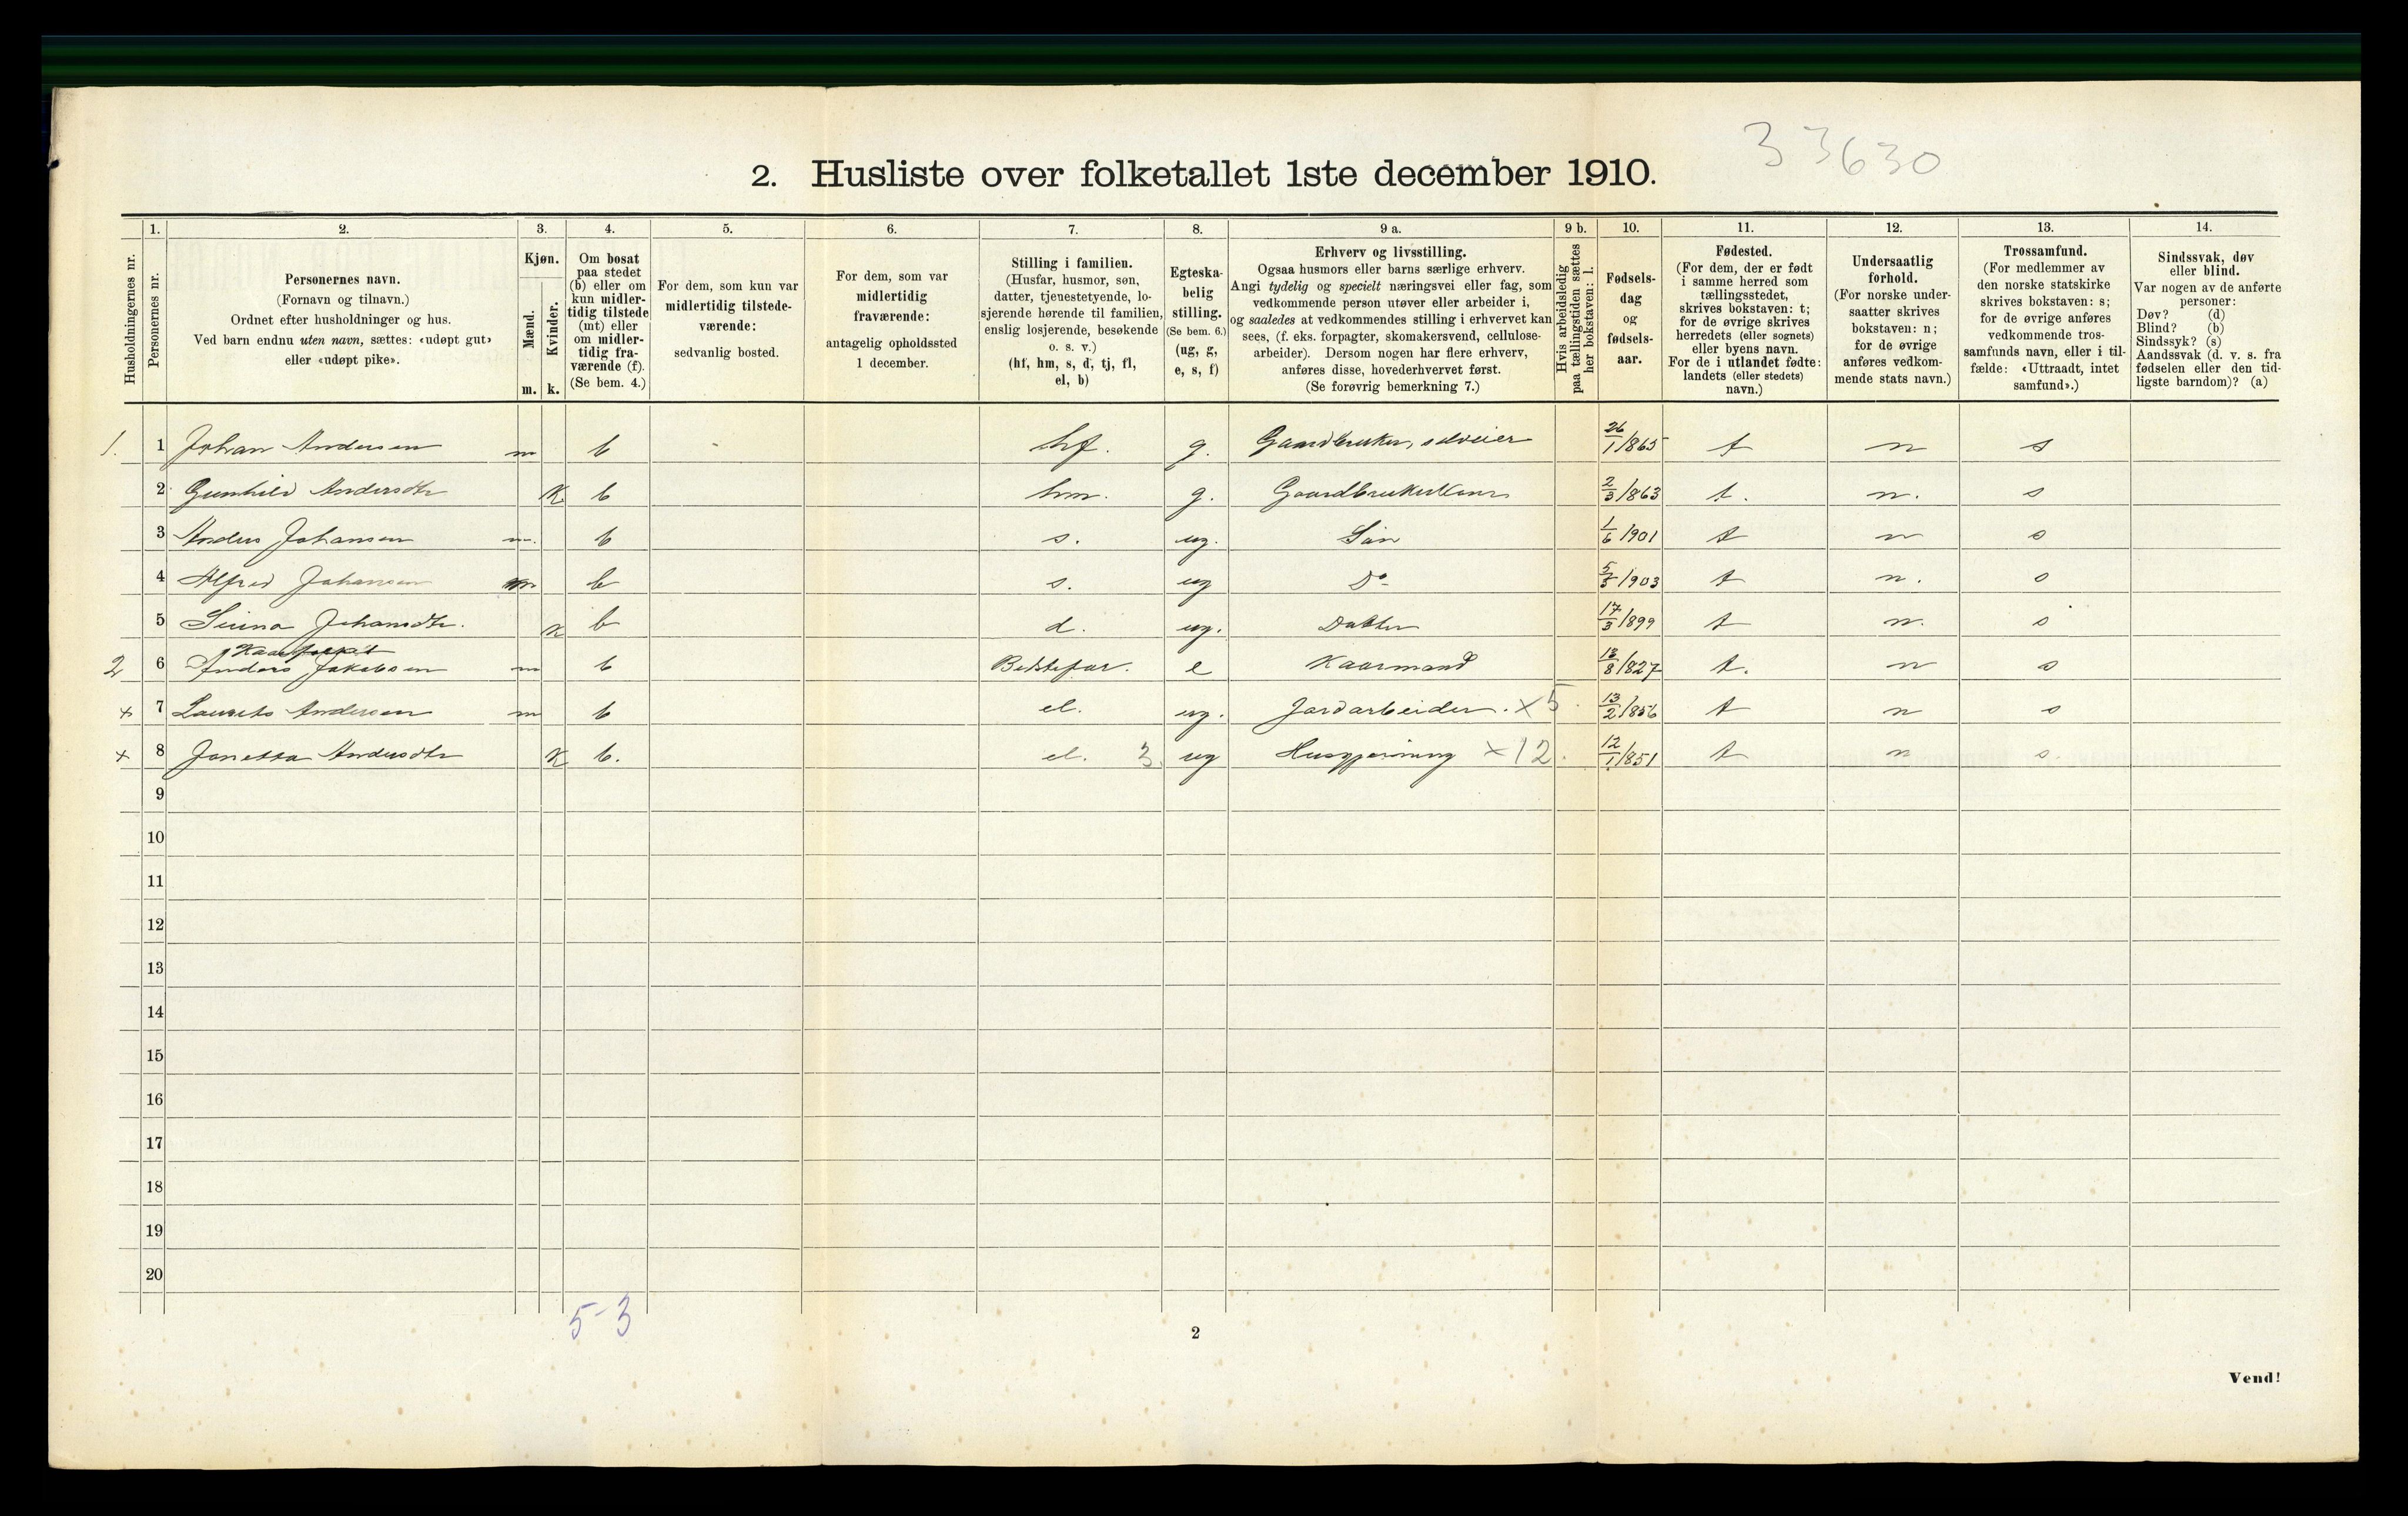 33630
2. Husliste over folketallet 1ste december 1910.
Husholdningernes nr.
1. Personernes nr.
2. Personernes navn. (Fornavn og tilnavn.) Ordnet efter husholdninger og hus. Ved barn endnu uten navn, sættes: «udøpt gut» eller «udøpt pike».
3. Kjøn. Mænd. m. Kvinder. k.
4. Om bosat paa stedet (b) eller om kun midlertidig tilstede (mt) eller om midlertidig fraværende (f). (Se bem. 4.)
5. For dem, som kun var midlertidig tilstedeværende: sedvanlig bosted.
6. For dem, som var midlertidig fraværende: antagelig opholdssted 1 december.
7. Stilling i familien. (Husfar, husmor, søn, datter, tjenestetyende, losjerende hørende til familien, enslig losjerende, besøkende o. s. v.) (hf, hm, s, d, tj, fl, el, b)
8. Egteskabelig stilling. (Se bem. 6.) (ug, g, e, s, f)
9 a. Erhverv og livsstilling. Ogsaa husmors eller barns særlige erhverv. Angi tydelig og specielt næringsvei eller fag, som vedkommende person utøver eller arbeider i, og saaledes at vedkommendes stilling i erhvervet kan sees, (f. eks. forpagter, skomakersvend, cellulosearbeider). Dersom nogen har flere erhverv, anføres disse, hovederhvervet først. (Se forøvrig bemerkning 7.)
9 b. Hvis arbeidsledig paa tællingstiden sættes her bokstaven: l.
10. Fødselsdag og fødselsaar.
11. Fødested. (For dem, der er født i samme herred som tællingsstedet, skrives bokstaven: t; for de øvrige skrives herredets (eller sognets) eller byens navn. For de i utlandet fødte: landets (eller stedets) navn.)
12. Undersaatlig forhold. (For norske undersaatter skrives bokstaven: n; for de øvrige anføres vedkommende stats navn.)
13. Trossamfund. (For medlemmer av den norske statskirke skrives bokstaven: s; for de øvrige anføres vedkommende trossamfunds navn, eller i tilfælde: «Uttraadt, intet samfund».)
14. Sindssvak, døv eller blind. Var nogen av de anførte personer: Døv? (d) Blind? (b) Sindssyk? (s) Aandssvak (d. v. s. fra fødselen eller den tidligste barndom)? (a)
1. 1 Johan Andersen m b hf. g. Gaardbruker, selveier 26/1/865 t n s
2 Gunhild Andersdtr K b hm. g. Gaardbrukerkone 2/3/863 t. n. s
3 Anders Johansen m. b s. ug. Søn 1/6 1901 t n s
4 Alfred Johansen m b s. ug Do 5/5/1903 t n. s
5 Johansdtr. K b d. ug. Datter 17/3/1899 t n. s
Kaarfolket
2 6 Anders Jakobsen m b Bedstefar. e Kaarmand 13/8/827 t. n s
x 7 Laurits Andersen m b el. ug. Jordarbeider. x5. 13/2/856 t n s
x 8 Janetta Andersdtr K b. el. 3. ug Husgjerning x12. 12/1/851 t n s.
9
10
11
12
13
14
15
16
17
18
19
20
5-3
2
Vend!